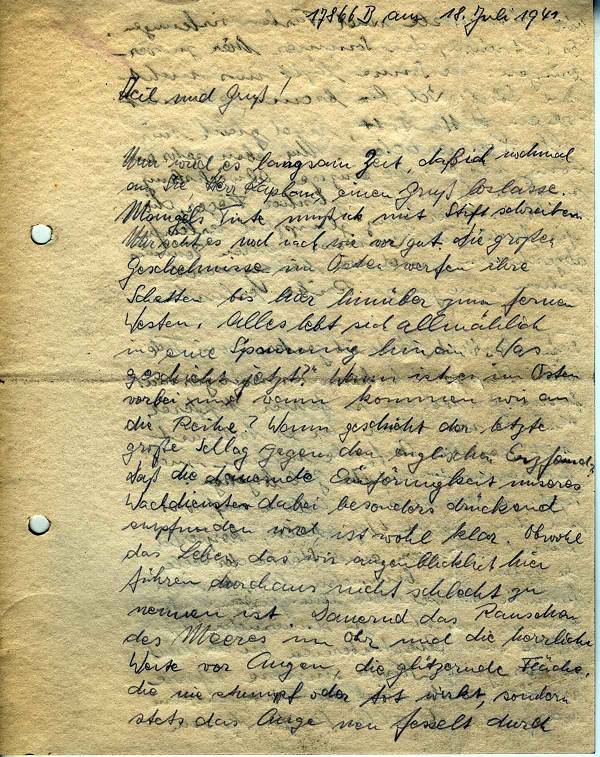 17866 B, am 18. Juli 1941
Heil und Gruß!
Nun wird es langsam Zeit, daß ich nochmal
an Sie Herr Kaplan, einen Gruß loslasse.
Mangels Tinte muß ich mit Stift schreiben.
Mir geht es noch nach wie vor gut. Die großen
Geschehnisse im Osten werfen ihre
Schatten bis hier hinüber zum fernen
Westen. Alles lebt sich allmählich
in eine Spannung hinein. "Was
geschieht jetzt?" Wann ist es im Osten
vorbei und wann kommen wir an
die Reihe? Wann geschieht der letzte
große Schlag gegen den englischen Erzfeind?
Daß die dauernde Einförmigkeit unseres
Wachdienstes dabei besonders drückend
empfunden wird ist wohl klar. Obwohl
das Leben das wir augenblicklich hier
führen durchaus nicht schlecht zu
nennen ist. Dauernd das Rauschen
des Meeres im Ohr und die herrliche
Weite vor Augen, die glitzernde Fläche,
die nie stumpf oder tot wirkt, sondern
stets das Auge neu fesselt durch